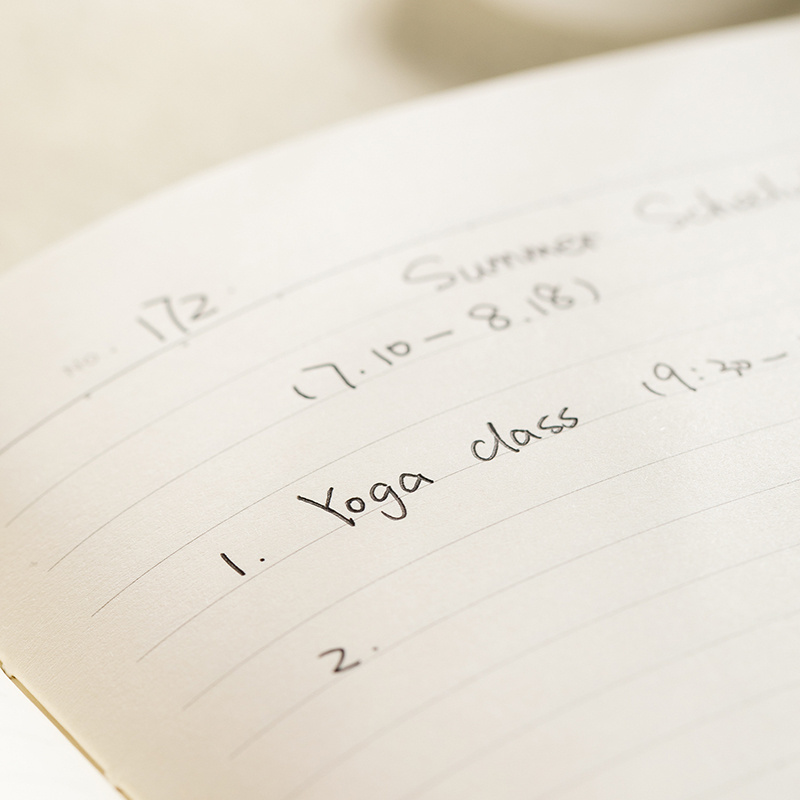 No. 172
Summer Sched
(7.10 - 8.18)
1. Yoga class (9:30 -
2.